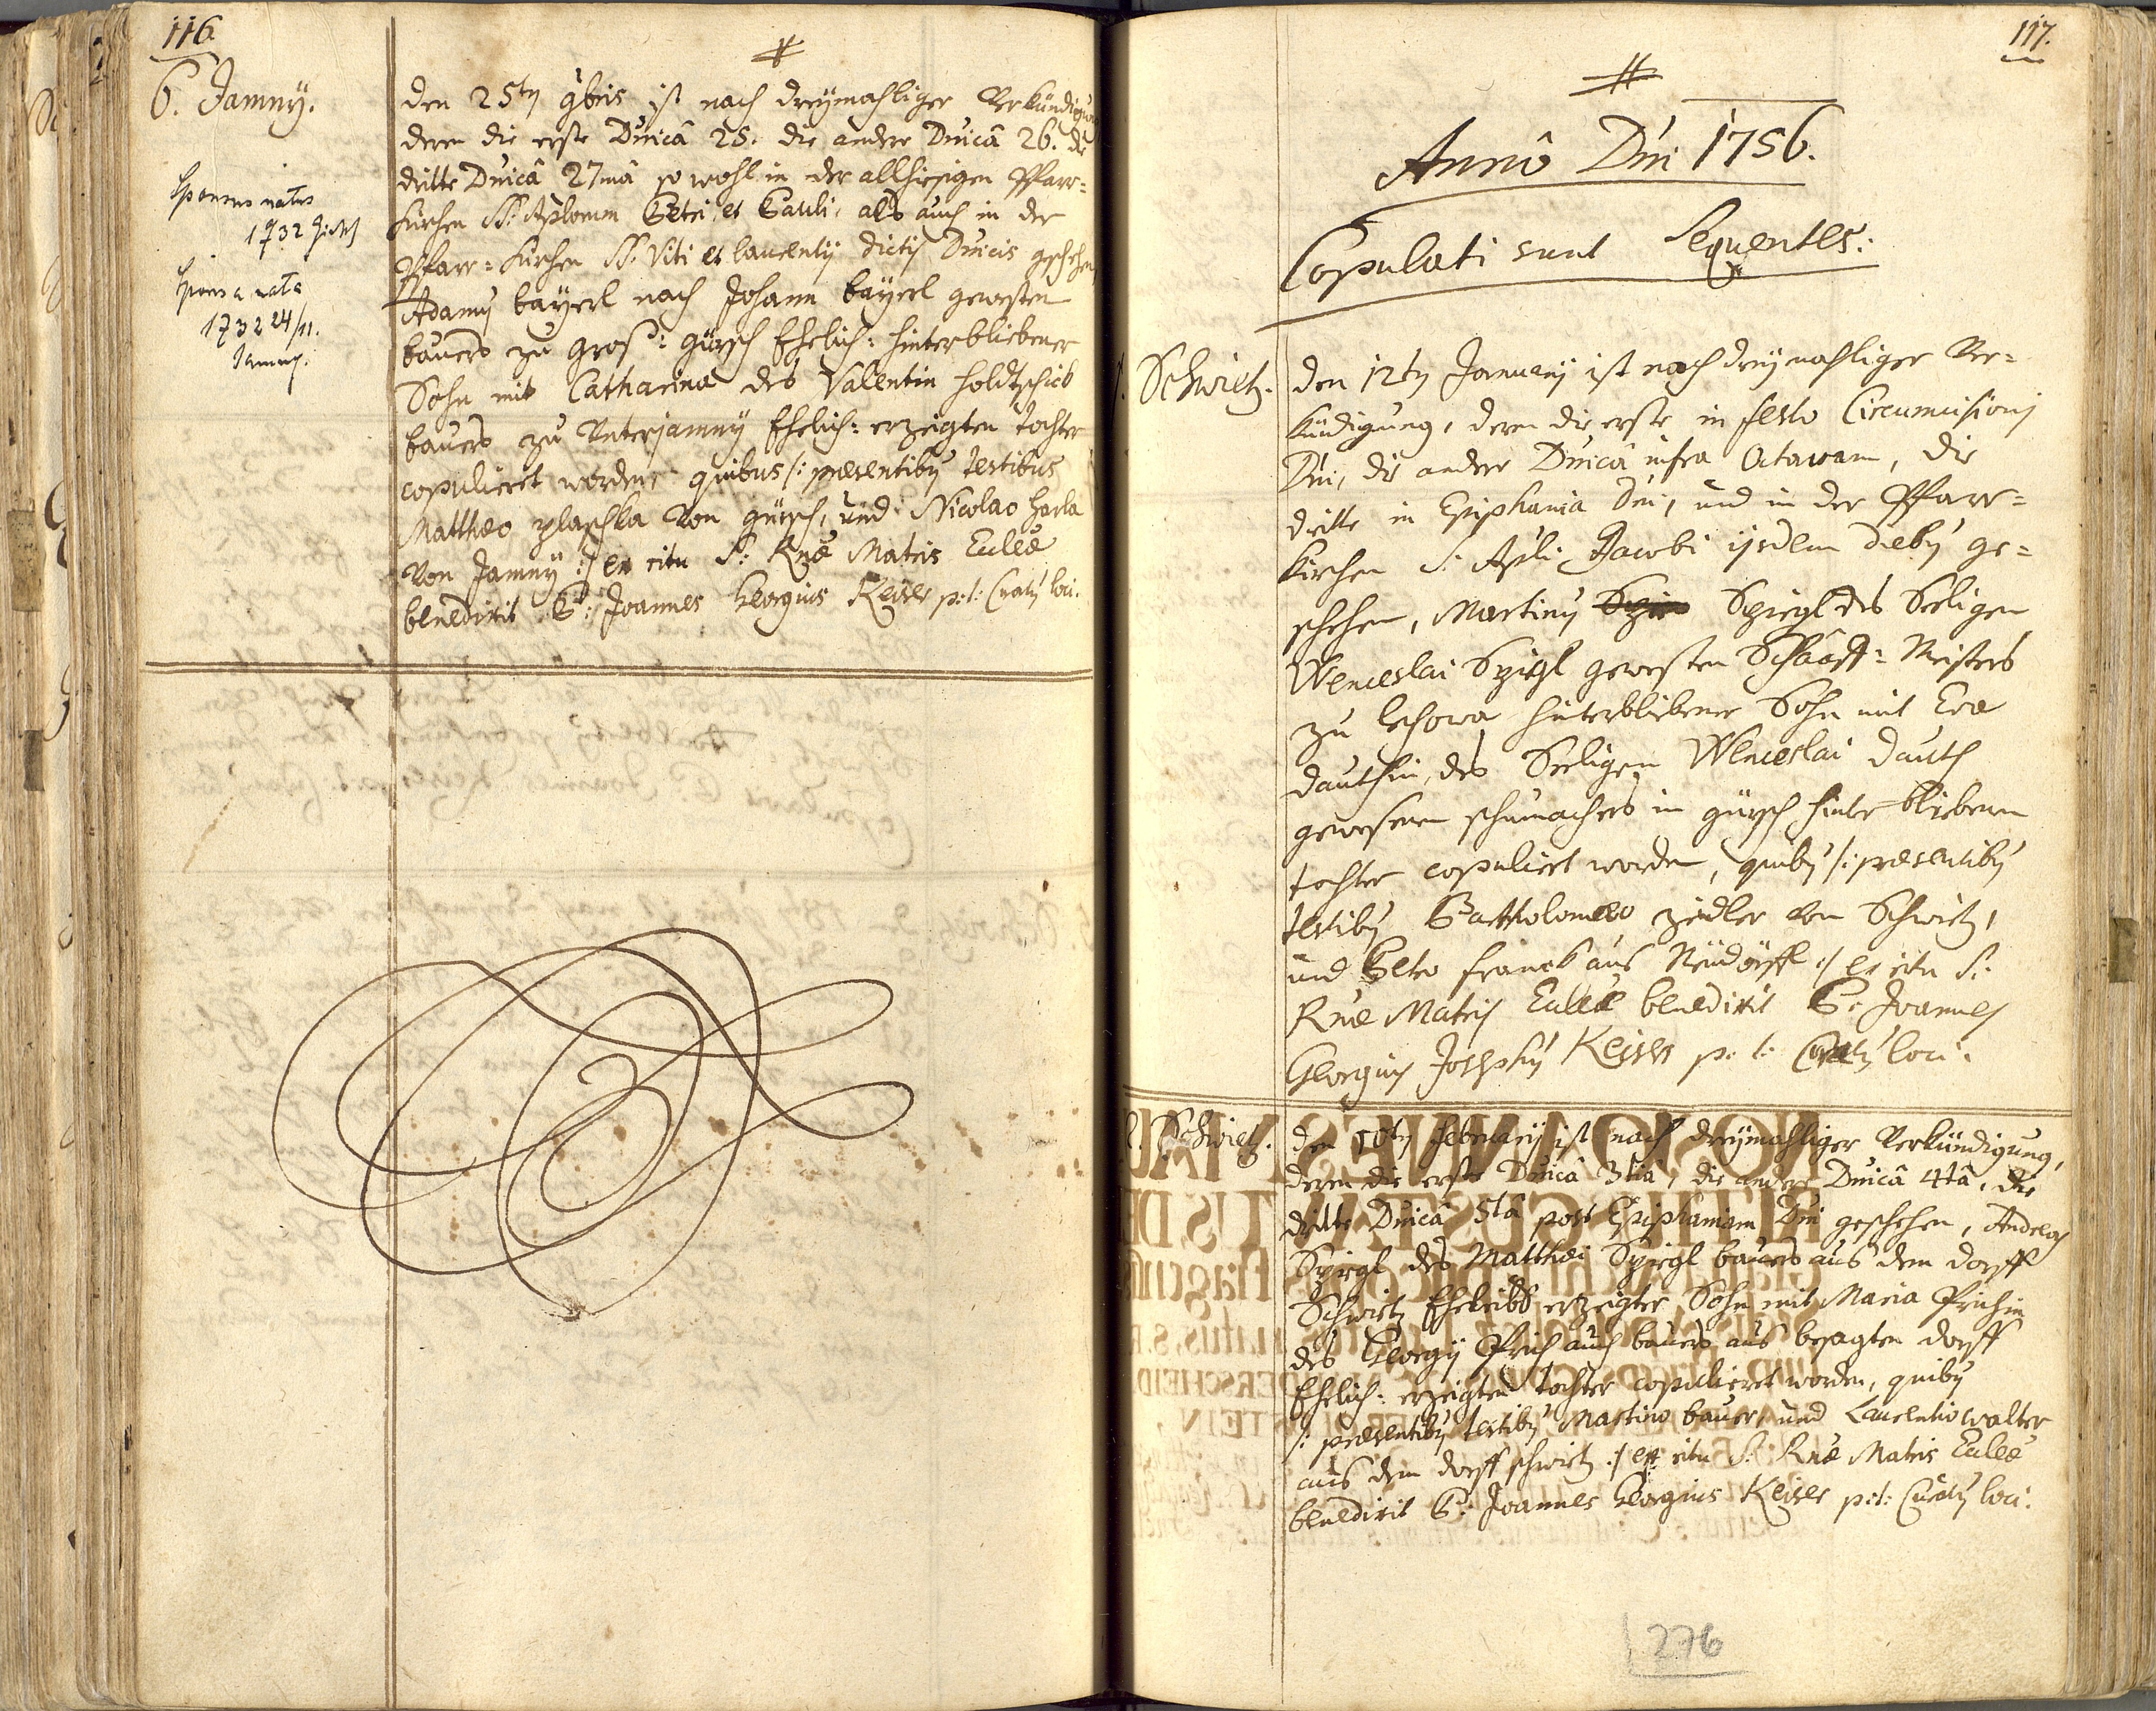 116.
6. Jamny.
Sponsus natus
1732
Sponsa nata
1732 24/11.
Jamny.
den 25ten 9bris ist nach dreymahliger Verkündigung
deren die erste Dnicâ 25. die andere Dnicâ 26. die
dritte Dnicâ 27mâ so wohl in der allhiesigen Pfarr=
Kirchen SS: Aplorum Petri, et Pauli, als auch in der
Pfarr=Kirchen SS: Viti et laurentij dictis Dnicis geschehen,
Adamus bayerl nach Johann bayerl gewesten
bauers zu groß=gürsch Ehelich: hinterbliebener
Sohn mit Catharina des Valentin holdtschick
bauers zu Unterjamny Ehelich: erzeigten tochter
copulieret worden, quibus /: præsentibus testibus
Matthæo plaschka von gürsch, und Nicolao harla
von Jamny :/ ex ritu S: Rnæ Matris Eclææ
benedixit P: Joannes Georgius Keiser p:t: Curatus loci.
117.
Annô Dni 1756.
Copulati sunt Sequentes:
1. Schwietz.
den 12ten January ist nach dreymahliger Ver=
kündigung, deren die erste in festo Circumcisionis
Dni, die andere Dnicâ infra Octavam, die
dritte in Epiphania Dni, und in der Pfarr=
Kirchen S: Apli Jacobi ijsdem diebus ge=
schehen, Martinus Spiegl des Seeligen
Wenceslai Spiegl gewesten Schaaff=Meisters
zu lchowa hinterbliebener Sohn mit Eva
dauthin, des Seeligen Wenceslai dauth
gewesenen schumachers in gürsch hinterbliebenen
tochter copuliert worden, quibus /: præsentibus
testibus Bartholomæo zidler von Schwietz,
und Petro franck aus Neüdörffl :/ ex ritu S:
Rnæ Matris Eclææ benedixit P: Joannes
Georgius Josephus Keiser p: t: Curatus loci.
2. Schwietz.
den 10ten February ist nach dreymahliger Verkündigung,
deren die erste Dnicâ 3tiâ, die andere Dnicâ 4tâ, die
dritte Dnicâ 5tâ post Epiphaniam Dni geschehen, Andreas
Spiegl des Matthæi Spiegl bauers aus dem dorff
Schwietz Eheleiblich erzeigter Sohn mit Maria Prichin
des Georgij Prich auch bauers aus besagten dorff
Ehelich: erzeigten tochter copulieret worden, quibus
/: præsentibus testibus Martino bauer, und Laurentio walter
aus dem dorff schwietz :/ ex ritu S: Rnæ Matris Eclææ
benedixit P: Joannes Georgius Keiser p:t: Curatus loci.
276